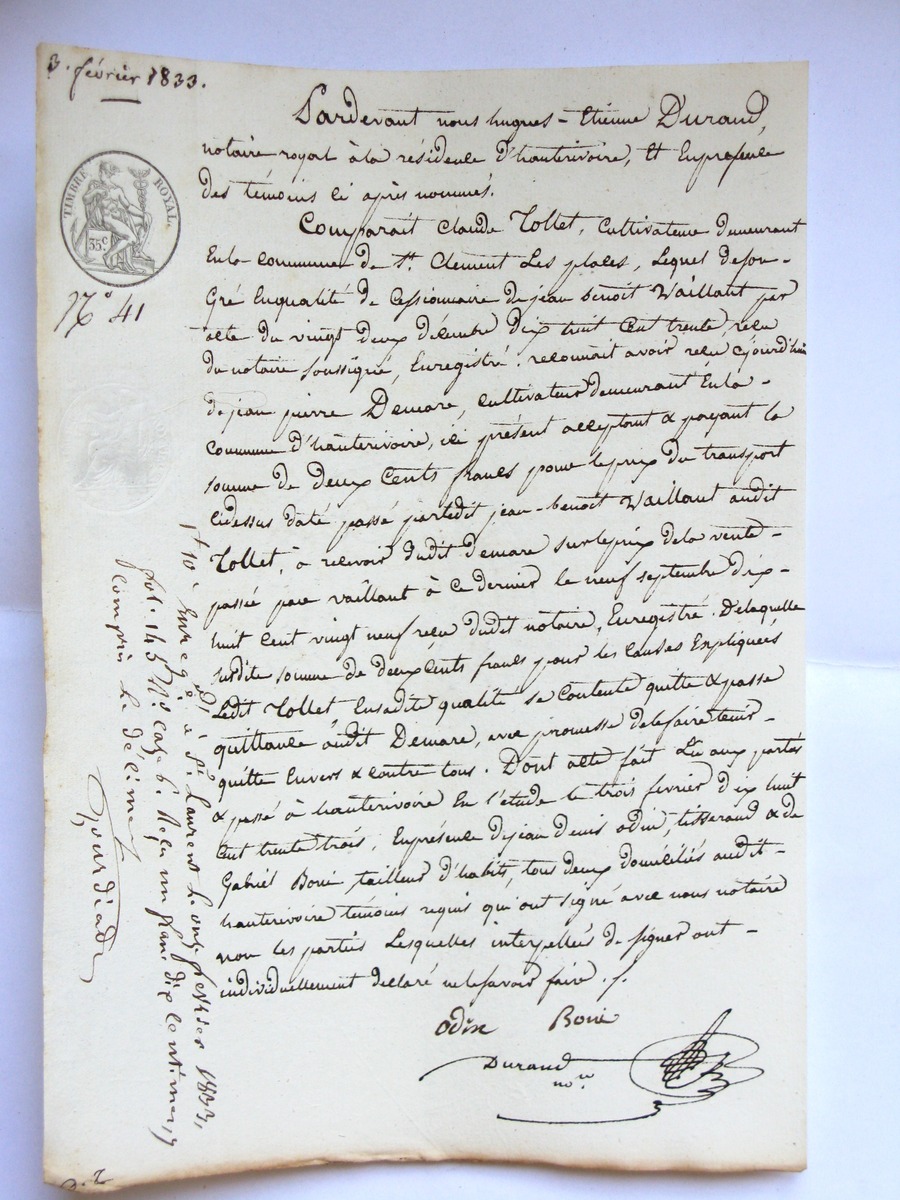 3. février 1833.
Pardevant nous hugues-Etienne Durand,
notaire royal à la résidence d'hauterivoire, et en présence
des témoins ci après nommés.
TIMBRE ROYAL.
35c
N° 41
Comparait Claude Tollet, cultivateur demeurant
en la commune de St. Clement Les places, Lequel de son-
Gré en qualité de Cessionnaire de jean benoit Vaillant par
acte du vingt deux décembre dix huit cent trente, reçu
du notaire soussigné, Enregistré. reconnait avoir reçu cejourd'hui
de jean pierre Demare, cultivateur demeurant en la-
commune d'hauterivoire, ici présent acceptant & payant la
somme de deux Cents francs pour le prix du transport
cidessus daté passé par ledit jean-benoit Vaillant audit
Tollet, à recevoir dudit Demare sur le prix de la vente-
passée par vaillant à ce dernier le neuf septembre dix-
huit cent vingt neuf reçu dudit notaire, Enregistré. De laquelle
susdite somme de deux cents francs pour les causes expliquées
Ledit Tollet en sadite qualité se contente quitte & passe
quittance audit Demare, avec promesse de le faire tenir-
quitte envers & contre tous. Dont acte fait Lu aux parties
& passé à hauterivoire En l'étude le trois fevrier dix huit
cent trente trois, En présence de jean denis odin, tisserand & de
Gabriel Boni tailleur d'habits, tous deux domiciliés audit-
hauterivoire témoins requis qui ont signé avec nous notaire
non les parties Lesquelles interpellées de signer ont-
individuellement déclaré ne le savoir faire ./.
odin Boni
Durand
nore
Enregé à St. Laurent le onze fevrier 1833,
fol. 145 Ro. case 6. Reçu un franc dix centimes,
compris le décime